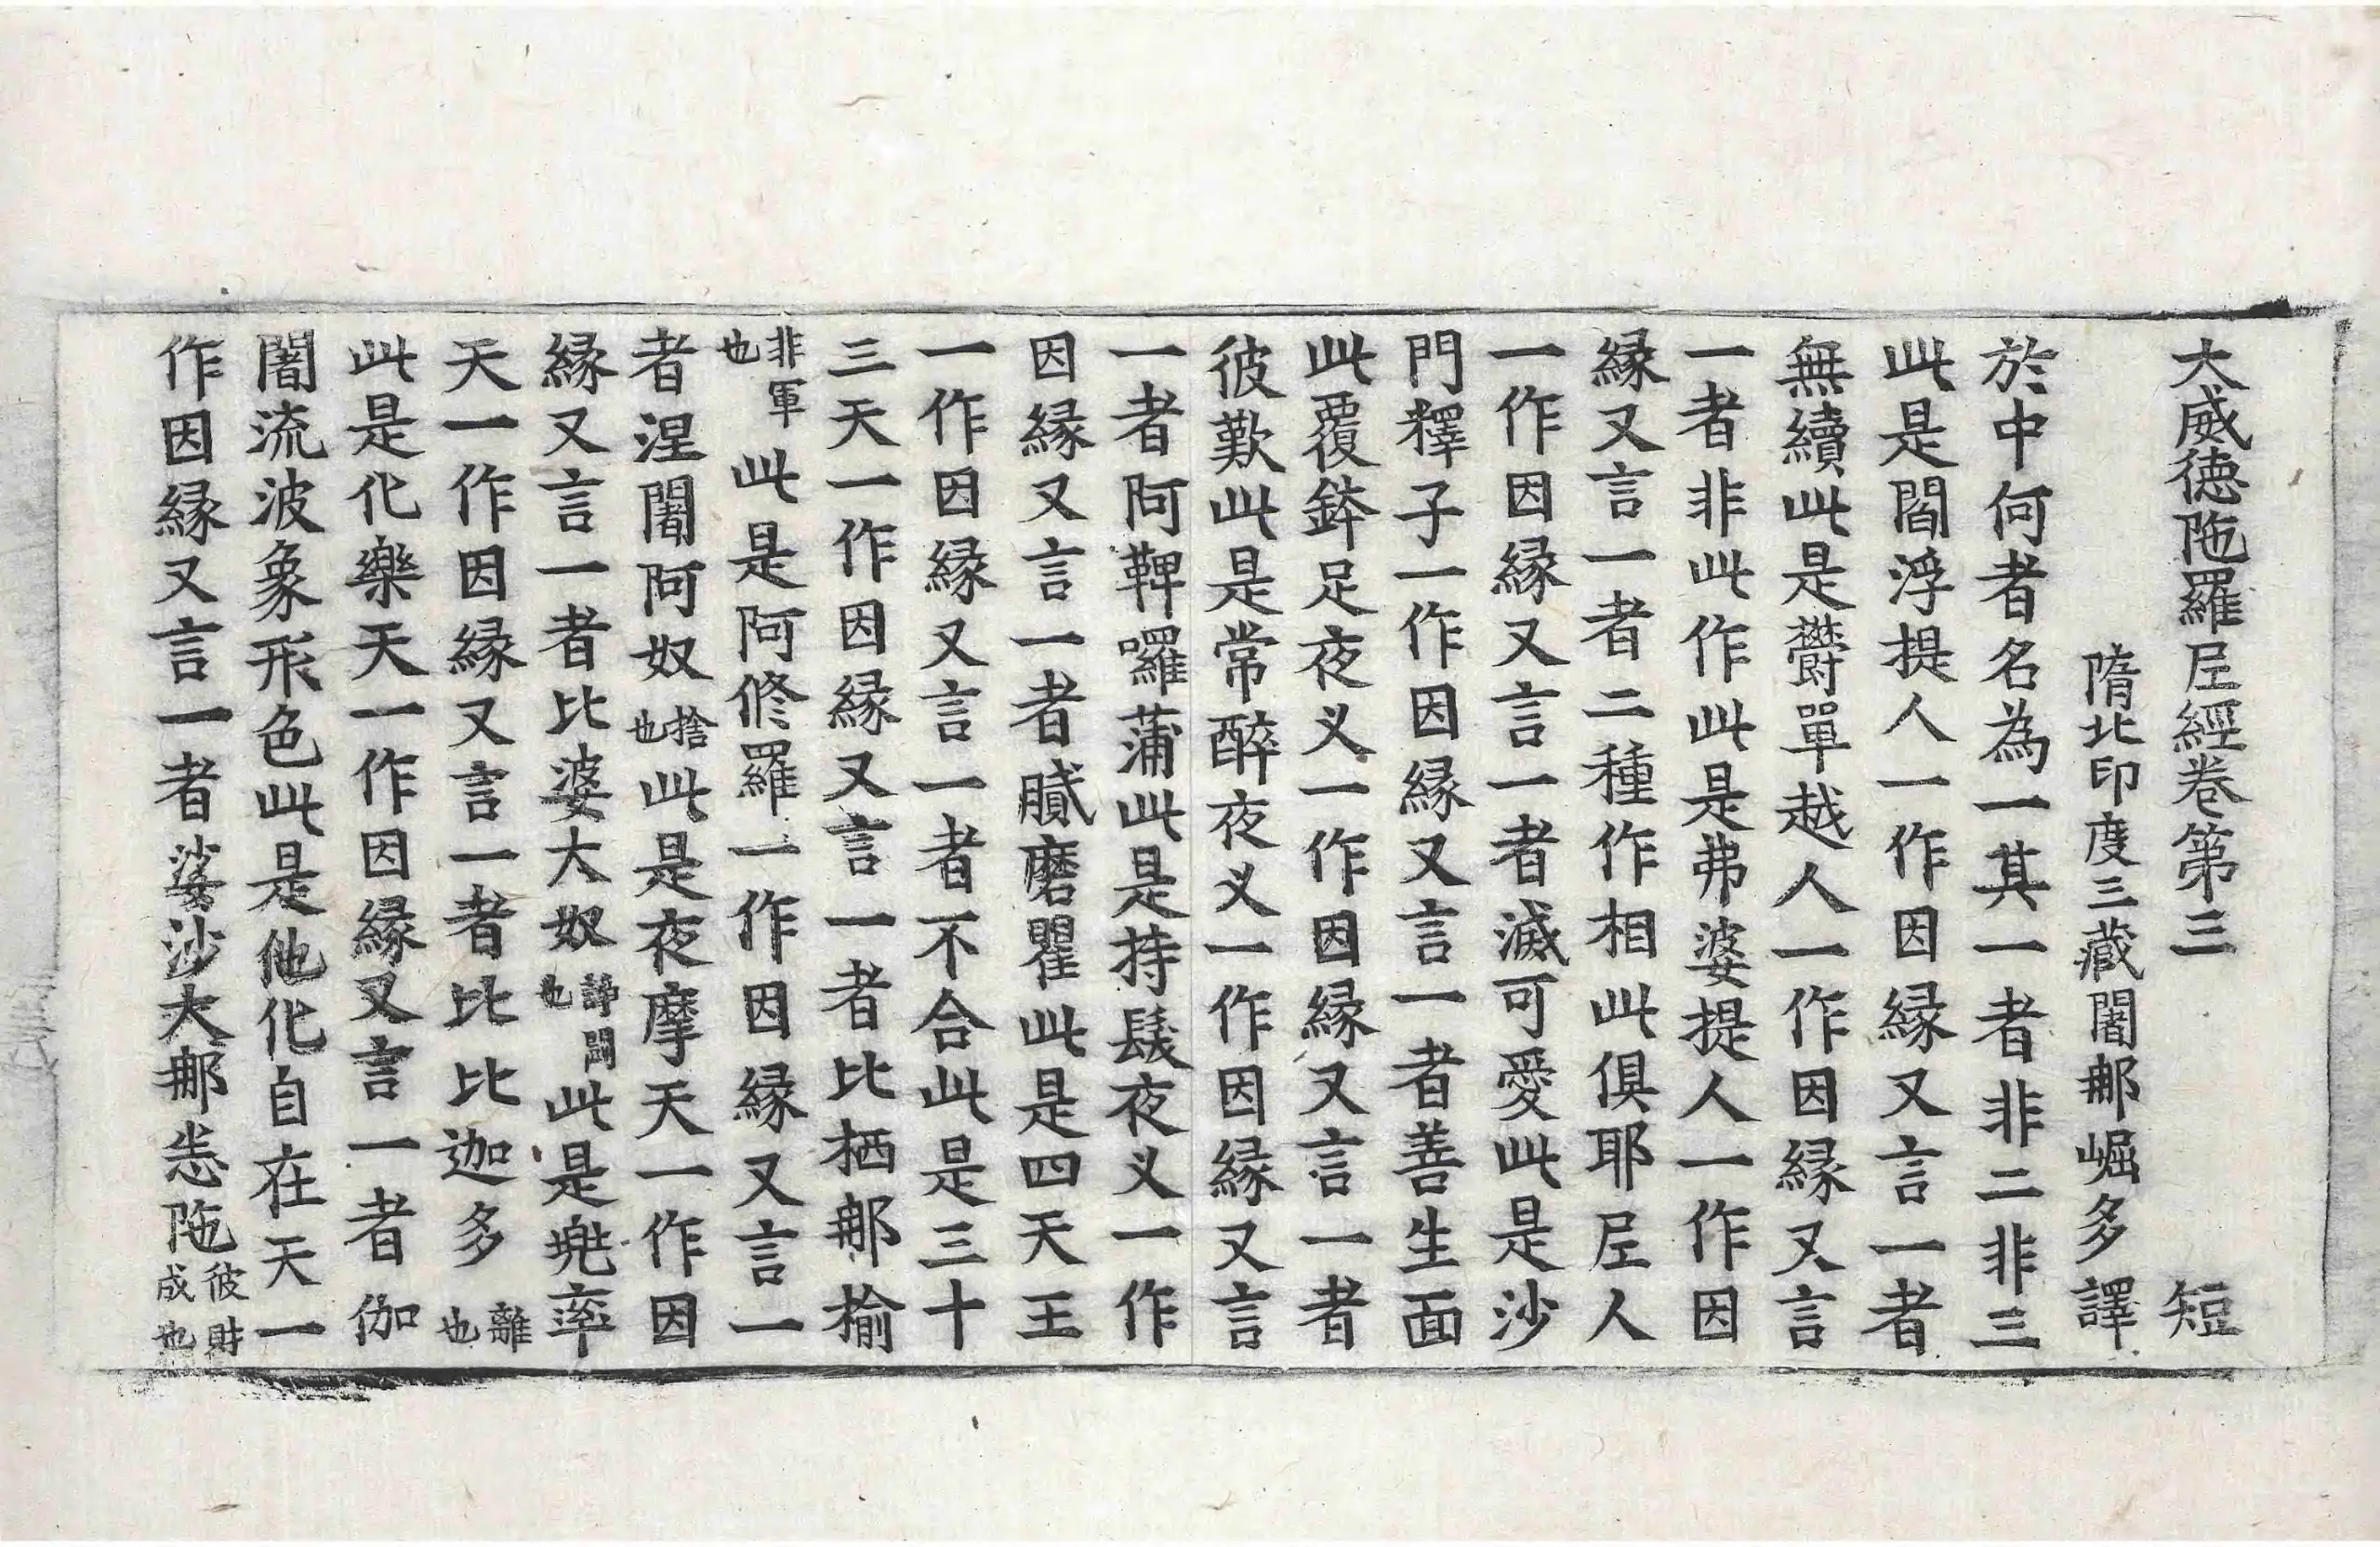 大威德陁羅尼經卷第三 短
隋北印度三藏闍那崛多譯
於中何者名為一其一者非二非三
此是閻浮提人一作因縁又言一者
無續此是欝單越人一作因縁又言
一者非此作此是弗婆提人一作因
縁又言一者二種作相此俱耶尼人
一作因縁又言一者滅可愛此是沙
門釋子一作因縁又言一者善生面
此覆鉢足夜义一作因縁又言一者
彼歎此是常醉夜义一作因縁又言
一者阿鞞囉蒲此是持鬘夜义一作
因縁又言一者膩磨瞿此是四天王
一作因縁又言一者不合此是三十
三天一作因縁又言一者比栖那揄
非軍也此是阿修羅一作因縁又言一
者涅闍阿奴捨也此是夜摩天一作因
縁又言一者比婆大奴諍鬪也此是兠率
天一作因縁又言一者比比迦多離也
此是化樂天一作因縁又言一者伽
闍流波象形色此是他化自在天一
作因縁又言一者娑沙大那恙陁彼財成也